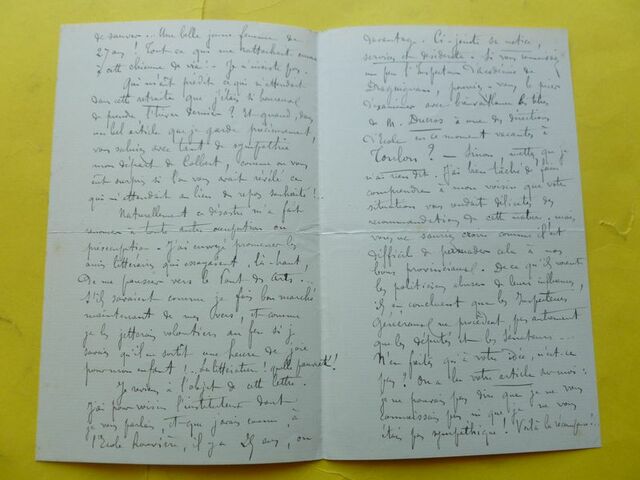 de sauver... Une belle jeune femme de
27 ans ! Tout ce qui me rattachait encore
à cette chienne de vie !.. Je n'insiste pas.
Qui m'eût prédit ce qui m'attendait
dans cette retraite que j'étais si heureux
de prendre l'hiver dernier ? Et quand, dans
un bel article que je garde précieusement,
vous saluiez avec tant de sympathie
mon départ de Colbert, comme on vous
eût surpris si l'on vous avait révélé ce
qui m'attendait au lieu du repos souhaité !..
Naturellement ce désastre m'a fait
renoncer à toute autre occupation ou
préoccupation. J'ai envoyé promener les
amis littéraires qui essayaient, là-haut,
de me pousser vers le Pont des Arts...
S'ils savaient comme je fais bon marché
maintenant de mes livres, et comme
je les jetterais volontiers au feu si je
savais qu'il en sortît une heure de joie
pour mon enfant !.. La littérature ! quelle pauvreté !
Je reviens à l'objet de cette lettre.
J'ai pour voisin l'instituteur dont
je vous parlais, et que j'avais connu à
l'Ecole, il y a 25 ans, ou
davantage. Ci-jointe sa notice,
services et desiderata. Si vous connaissez
un peu l'Inspecteur d'académie de
Draguignan, pourriez-vous le prier
d'examiner avec bienveillance les titres
de M. Ducros à une des directions
d'Ecole en ce moment vacantes à
Toulon ? — Sinon, mettez que je
n'ai rien dit. J'ai bien tâché de faire
comprendre à mon voisin que votre
situation vous rendait délicates des
recommandations de cette nature ; mais
vous ne sauriez croire comme il est
difficile de persuader cela à nos
bons provinciaux. De ce qu'ils voient
les politiciens abuser de leur influence,
ils en concluent que les Inspecteurs
Généraux ne procèdent pas autrement
que les députés et les sénateurs...
N'en faites qu'à votre idée, n'est-ce
pas ? On a lu votre article sur moi :
je ne pouvais pas dire que je ne vous
connaissais pas ni que je ne vous
étais pas sympathique ! Voilà la récompense !..